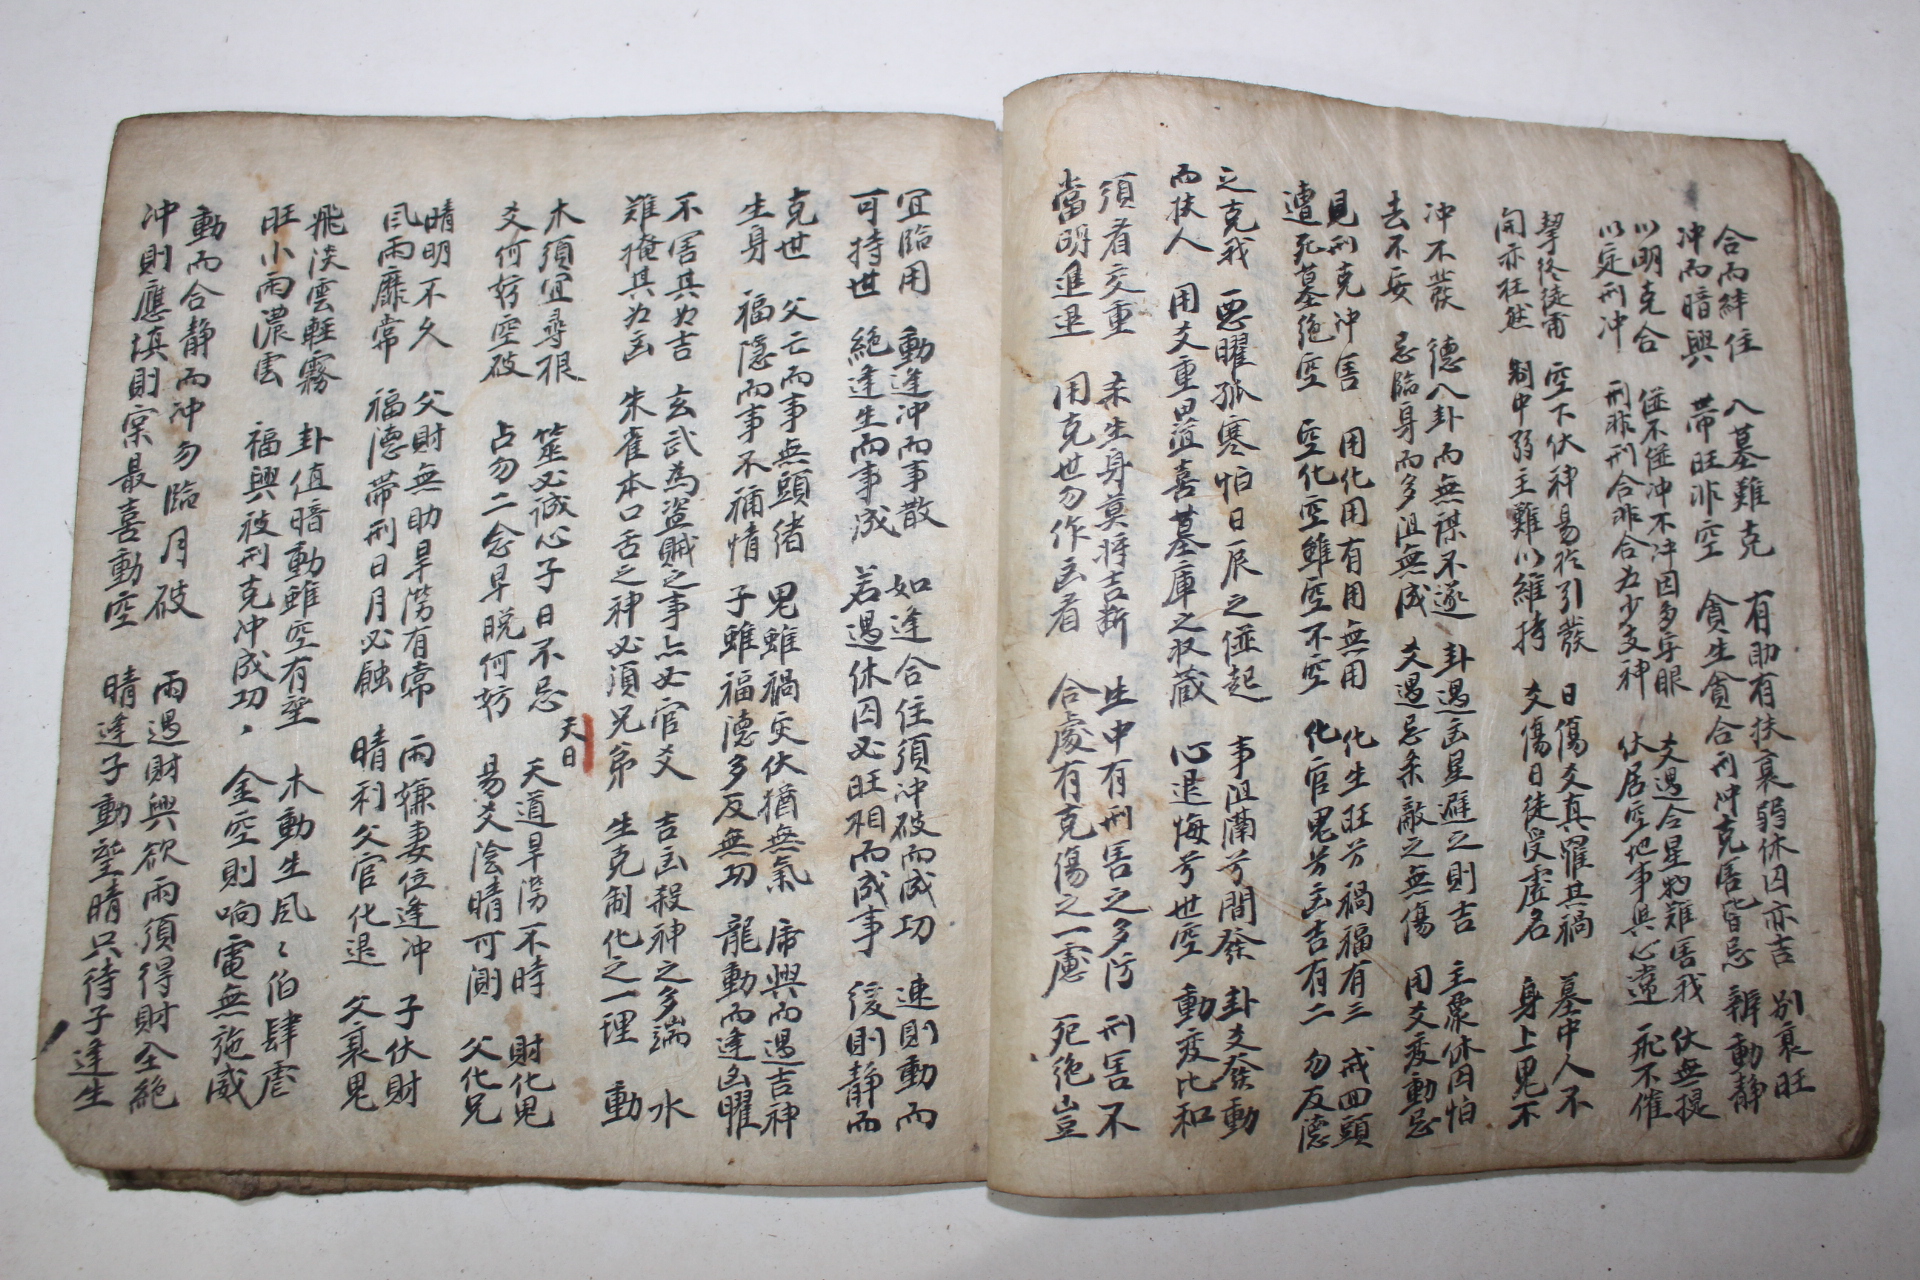 合而絆住 入墓難克 有助有扶衰弱休囚亦吉 別衰旺
冲而暗興 帶旺非空 貪生貪合刑冲克害皆忌 辨動静
以明克合 倂不倂冲不冲因多字眼 爻遇合星物難害我 伏無提
以定刑冲 刑非刑合非合为少支神 伏居空地事與心違 飛不催
挈終徒甬 空下伏神易於引發 日傷爻真罹其禍 墓中人不
開亦枉然 制中弱主難以維持 爻傷日徒受虛名 身上鬼不
冲不發 德入卦而無謀不遂 卦遇凶星避之則吉 主衆休囚怕
去不安 忌臨身而多阻無成 爻遇忌杀敵之無傷 用爻变動忌
見刑克冲害 用化用有用無用 化生旺兮禍福有三 戒回頭
遭死墓絶空 空化空雖空不空 化官鬼兮凶吉有二 勿反德
之克我 惡曜孤寒怕日辰之倂起 事阻滯兮間發 卦爻發動
而扶人 用爻重疊喜墓庫之収蔵 心退悔兮世空 動变比和
須看交重 杀生身莫將吉断 生中有刑害之多防 刑害不
當明進退 用克世勿作凶看 合處有克傷之一慮 死絶豈
宜臨用 動逢冲而事散 如逢合住須冲破而成功 速則動而
可持世 絶逢生而事成 若遇休囚必旺相而成事 緩則静而
克世 父亡而事無頭緖 鬼雖禍灾伏猶無氣 席興而遇吉神
生身 福隱而事不稱情 子雖福德多反無功 龍動而逢凶曜
不害其为吉 玄武為盜賊之事亦必官爻 吉凶殺神之多端 水
難掩其为凶 朱雀本口舌之神必須兄弟 生克制化之一理 動
木須宜尋根 筮必誠心子日不忌 天日 天道旱澇不時 財化鬼
爻何妨空破 占勿二念早晩何妨 易爻陰晴可測 父化兄
晴明不久 父財無助旱澇有常 雨嫌妻位逢冲 子伏財
風雨靡常 福德帶刑日月必蝕 晴利父官化退 父衰鬼
飛淡雲軽霧 卦值暗動雖空有望 木動生風〻伯肆虐
旺小雨濃雲 福興被刑克冲成功 金空則响電無施威
動而合静而冲勿臨月破 雨遇財興欲雨須得財全絶
冲則應塡則實最喜動空 晴逢子動望晴只待子逢生